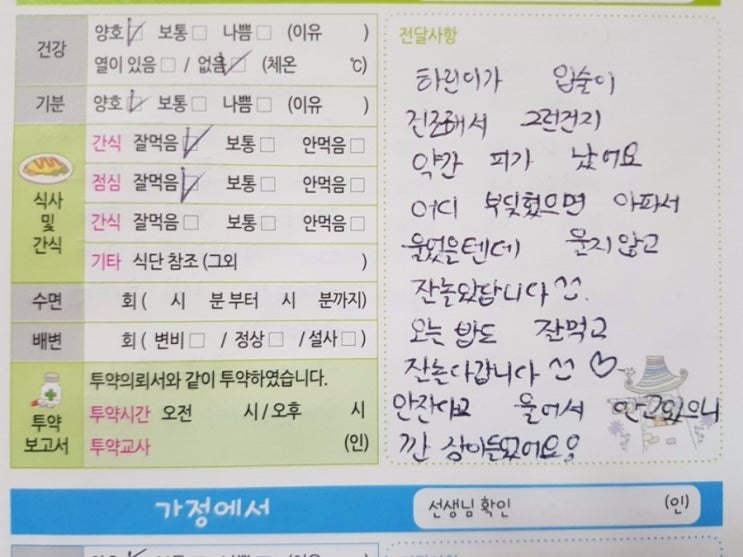 건강 양호☑ 보통☐ 나쁨☐ (이유 )
열이 있음☐ / 없음☑ (체온 ℃)
기분 양호☑ 보통☐ 나쁨☐ (이유 )
식사 및 간식
간식 잘먹음☑ 보통☐ 안먹음☐
점심 잘먹음☑ 보통☐ 안먹음☐
간식 잘먹음☐ 보통☐ 안먹음☐
기타 식단 참조 (그외 )
수면 회 ( 시 분 부터 시 분까지)
배변 회 ( 변비☐ / 정상☐ / 설사☐ )
투약 보고서
투약의뢰서와 같이 투약하였습니다.
투약시간 오전 시 / 오후 시
투약교사 (인)
전달사항
타린이가 입술이
건조해서 그런건지
약간 피가 났어요
어디 부딪혔으면 아파서
울었을텐데 울지않고
잘놀았답니다 ^^.
오늘 밥도 잘먹고
잘놀다갑니다 ^^ ♡
안잔다고 울어서 안고있으니
깐 잠이들었어요?
가정에서
선생님 확인 (인)